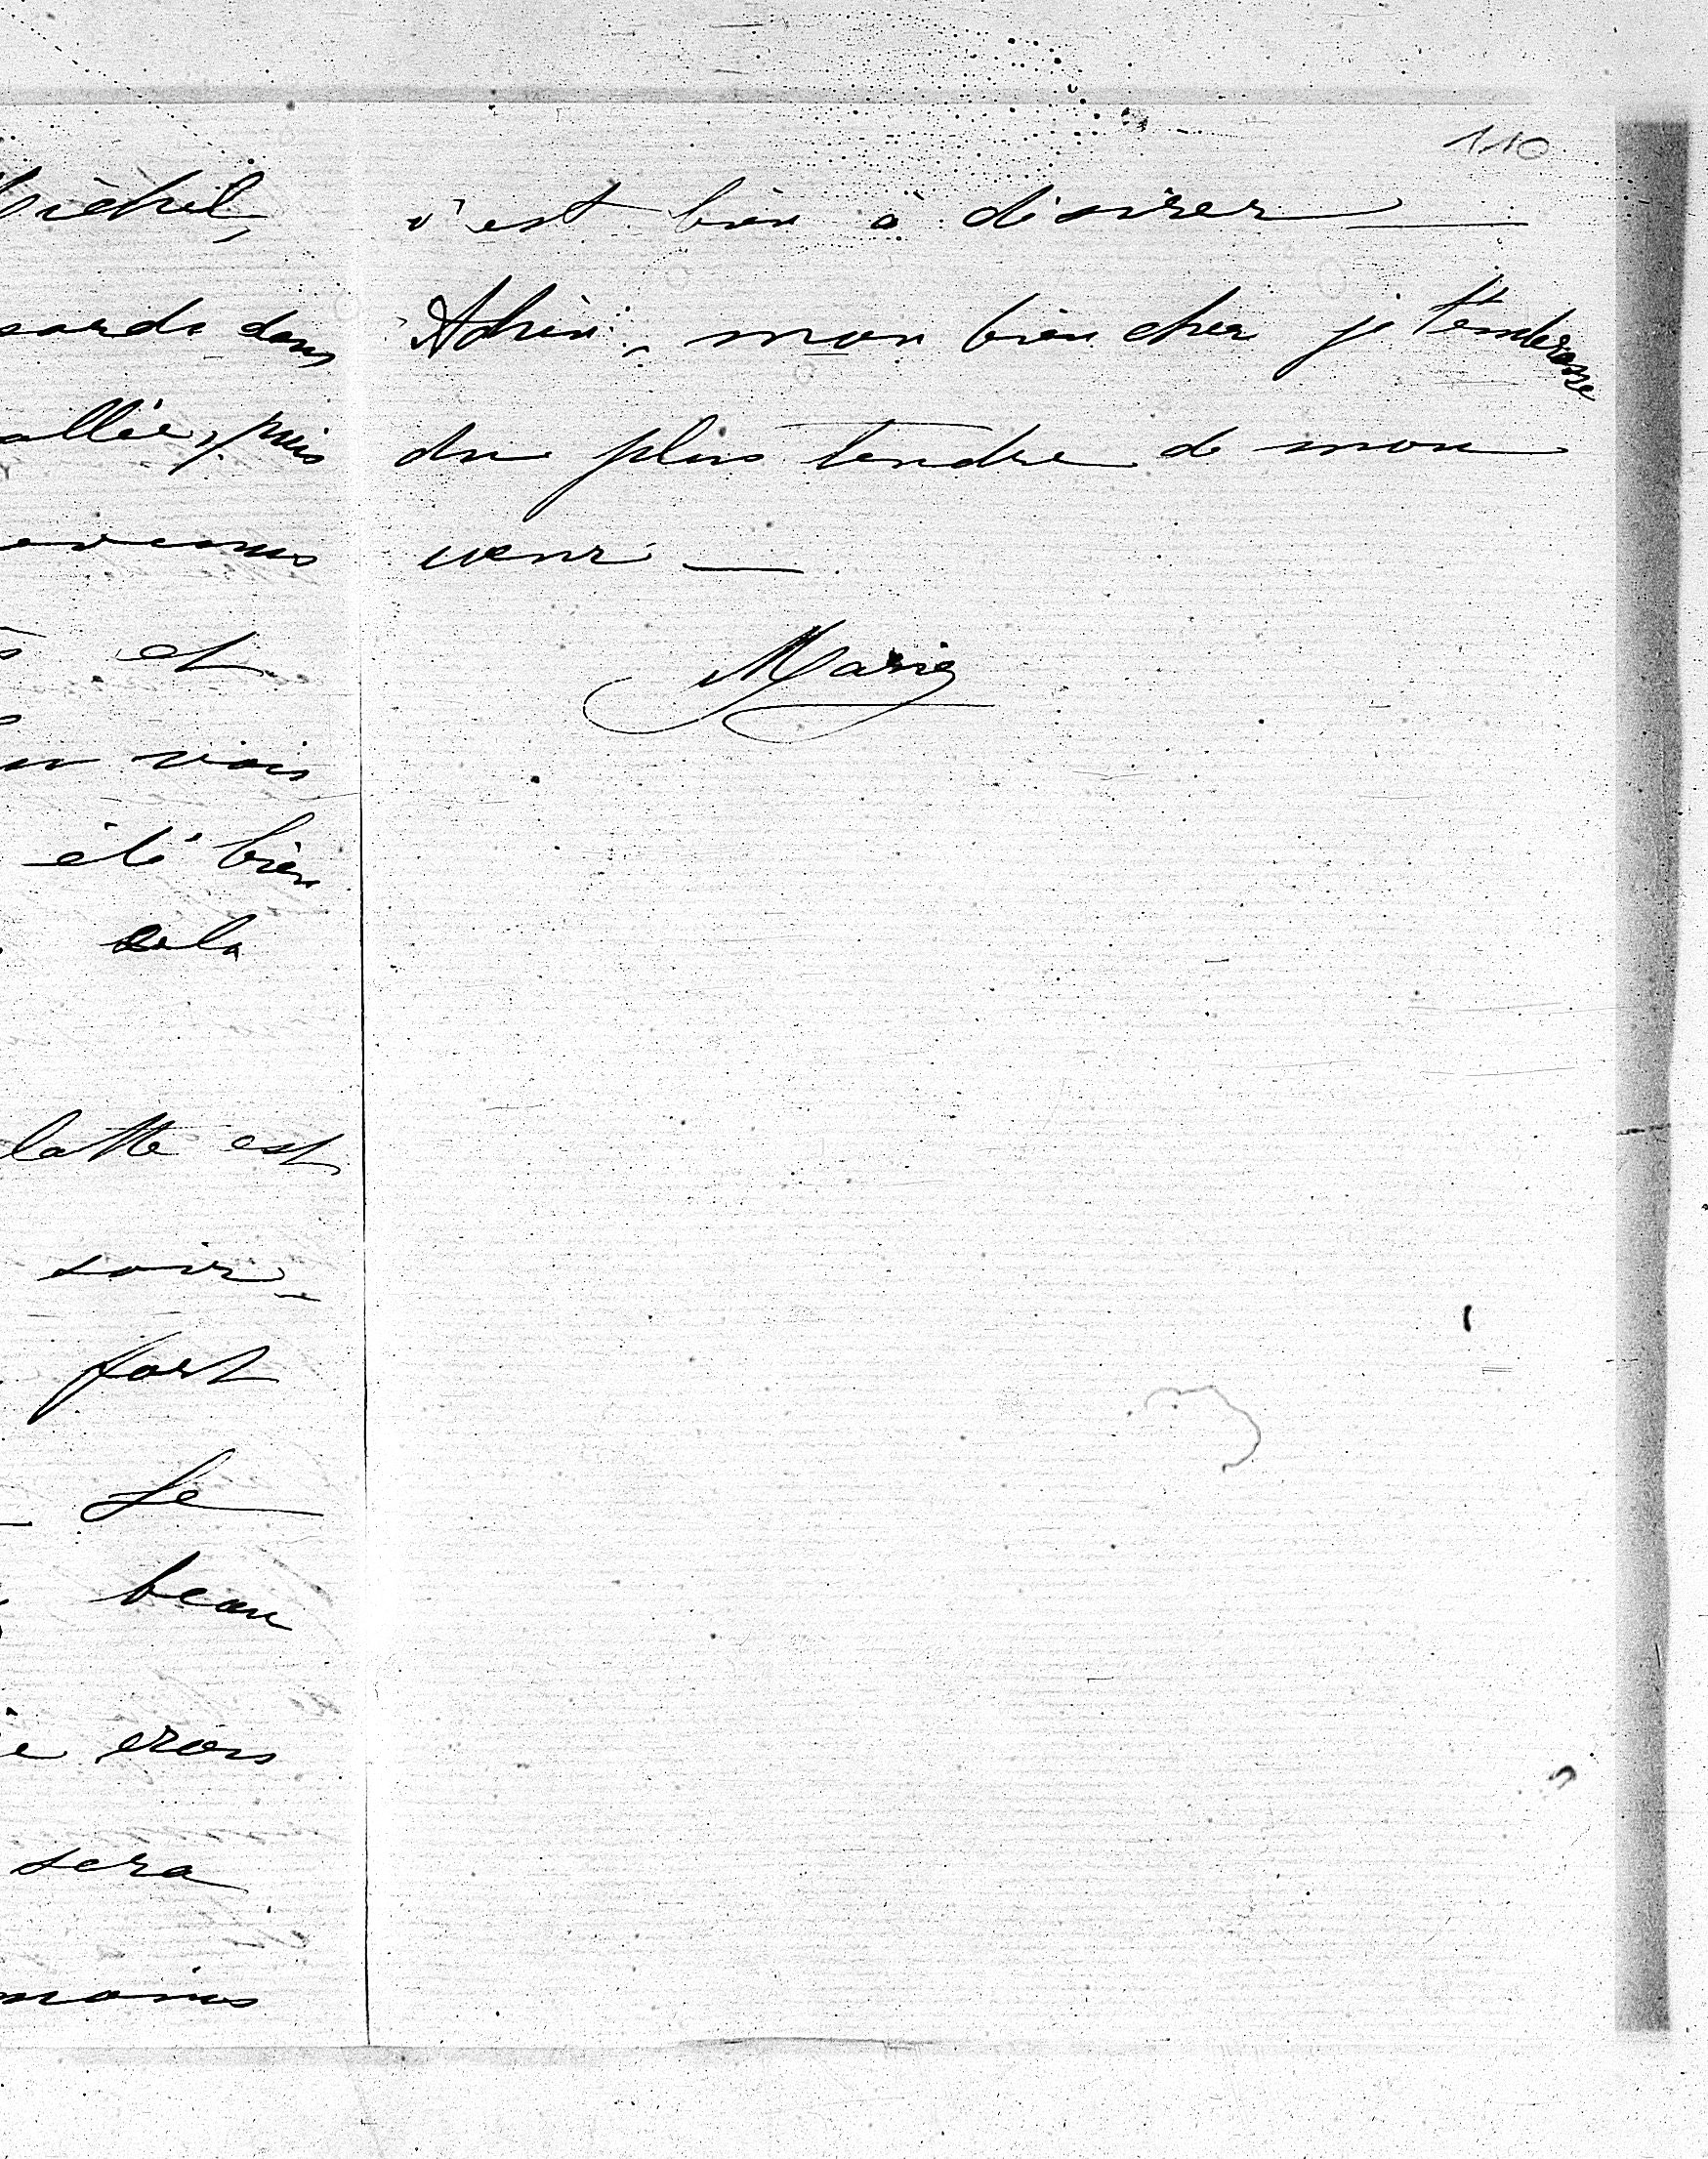 Michel,
dans
allée, puis
et
vois
été bien
cela
latte est
soir _
fort
_ Le
beau
crois
sera
moins
110
c'est bien à désirer —
Adieu, mon bien cher je t'embrasse
du plus tendre de mon
cœur —
Marie